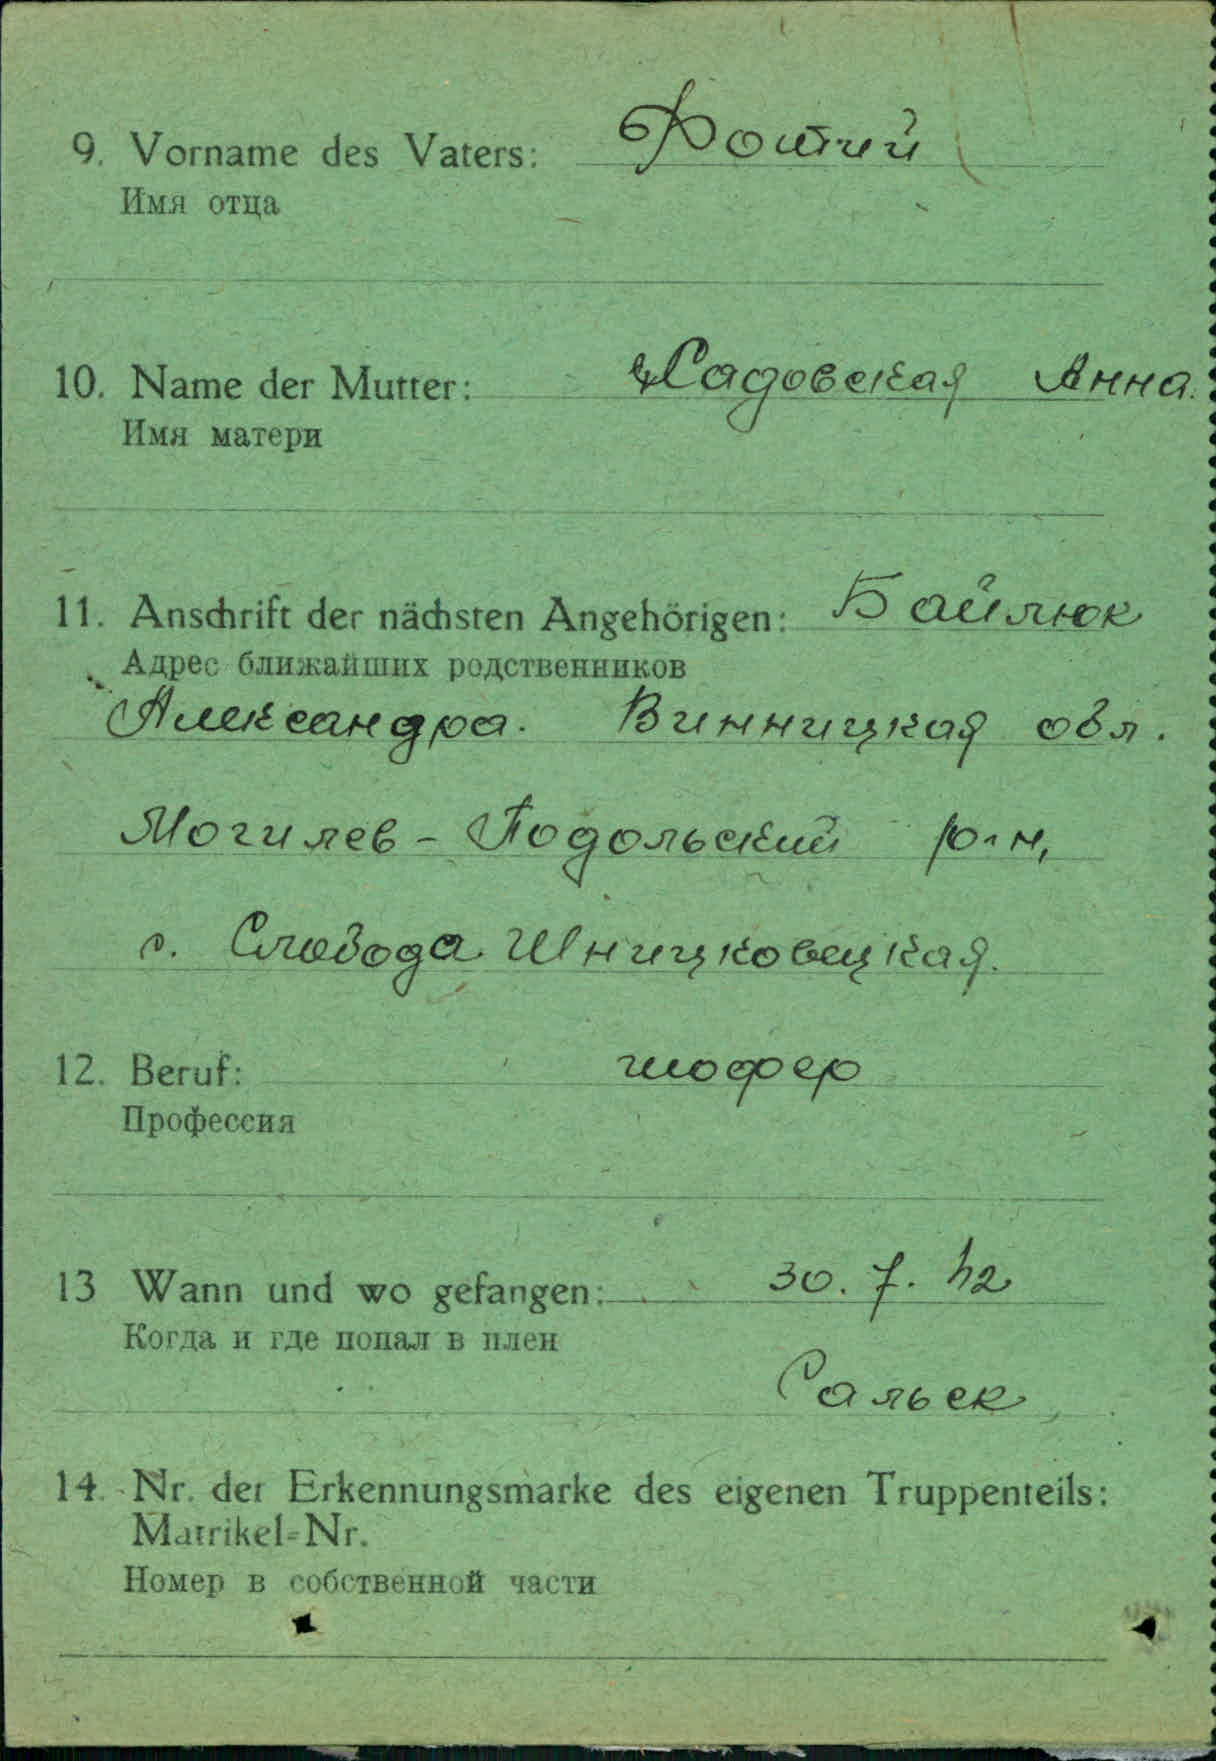 9. Vorname des Vaters: Фотий
Имя отца
10. Name der Mutter: Садовская Анна.
Имя матери
11. Anschrift der nächsten Angehörigen: Байлюк
Адрес ближайших родственников
Александра. Винницкая обл.
Могилев-Подольский р-н,
с. Слобода Шницковецкая.
12. Beruf: шофер
Профессия
13 Wann und wo gefangen: 30. 7. 42
Когда и где попал в плен
Сальск
14. Nr. der Erkennungsmarke des eigenen Truppenteils:
Matrikel-Nr.
Номер в собственной части